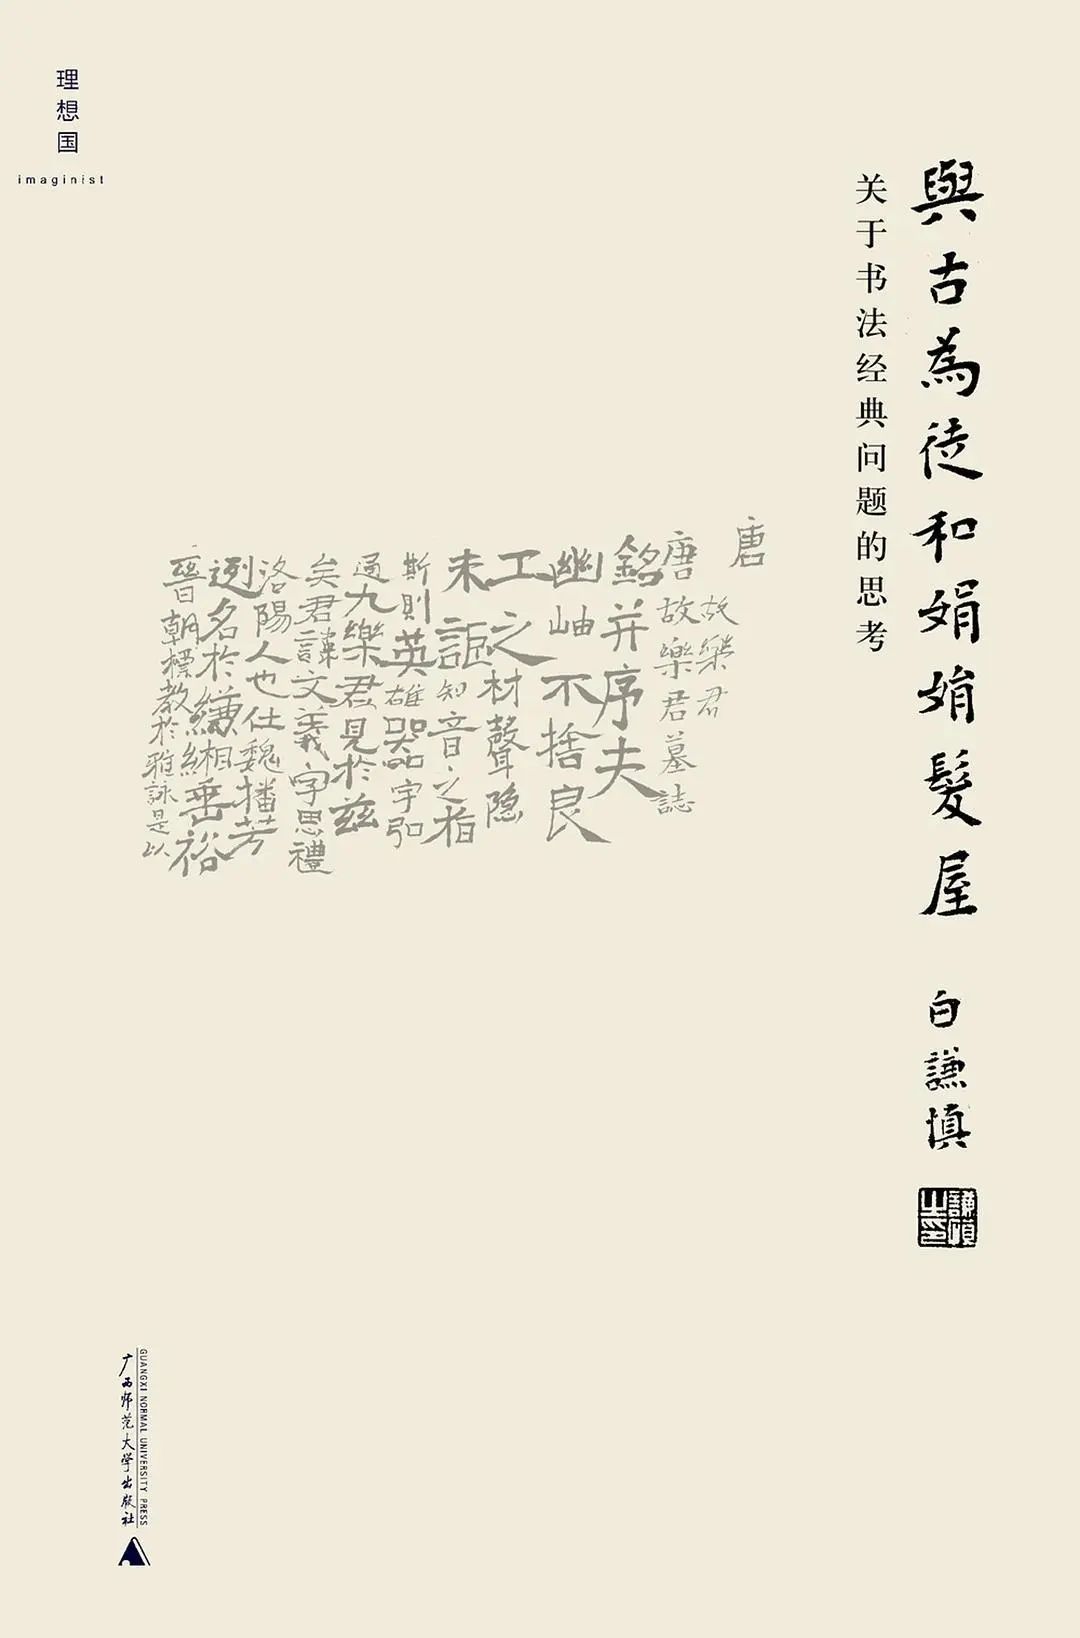 理想国
imaginist
與古為徒和娟娟髮屋
白謙慎
关于书法经典问题的思考
唐
故樂君
唐故樂君墓誌
銘并序夫
幽岫不捨良
工之材聲隐
未詎知音之指
斯則英雄器字弘
過九樂君見於兹
矣君諱文義字思禮
洛陽人也仕魏播芳
迾名於縑緗垂裕
晉朝標教於雅詠是以
广西师范大学出版社
GUANGXI NORMAL UNIVERSITY PRESS